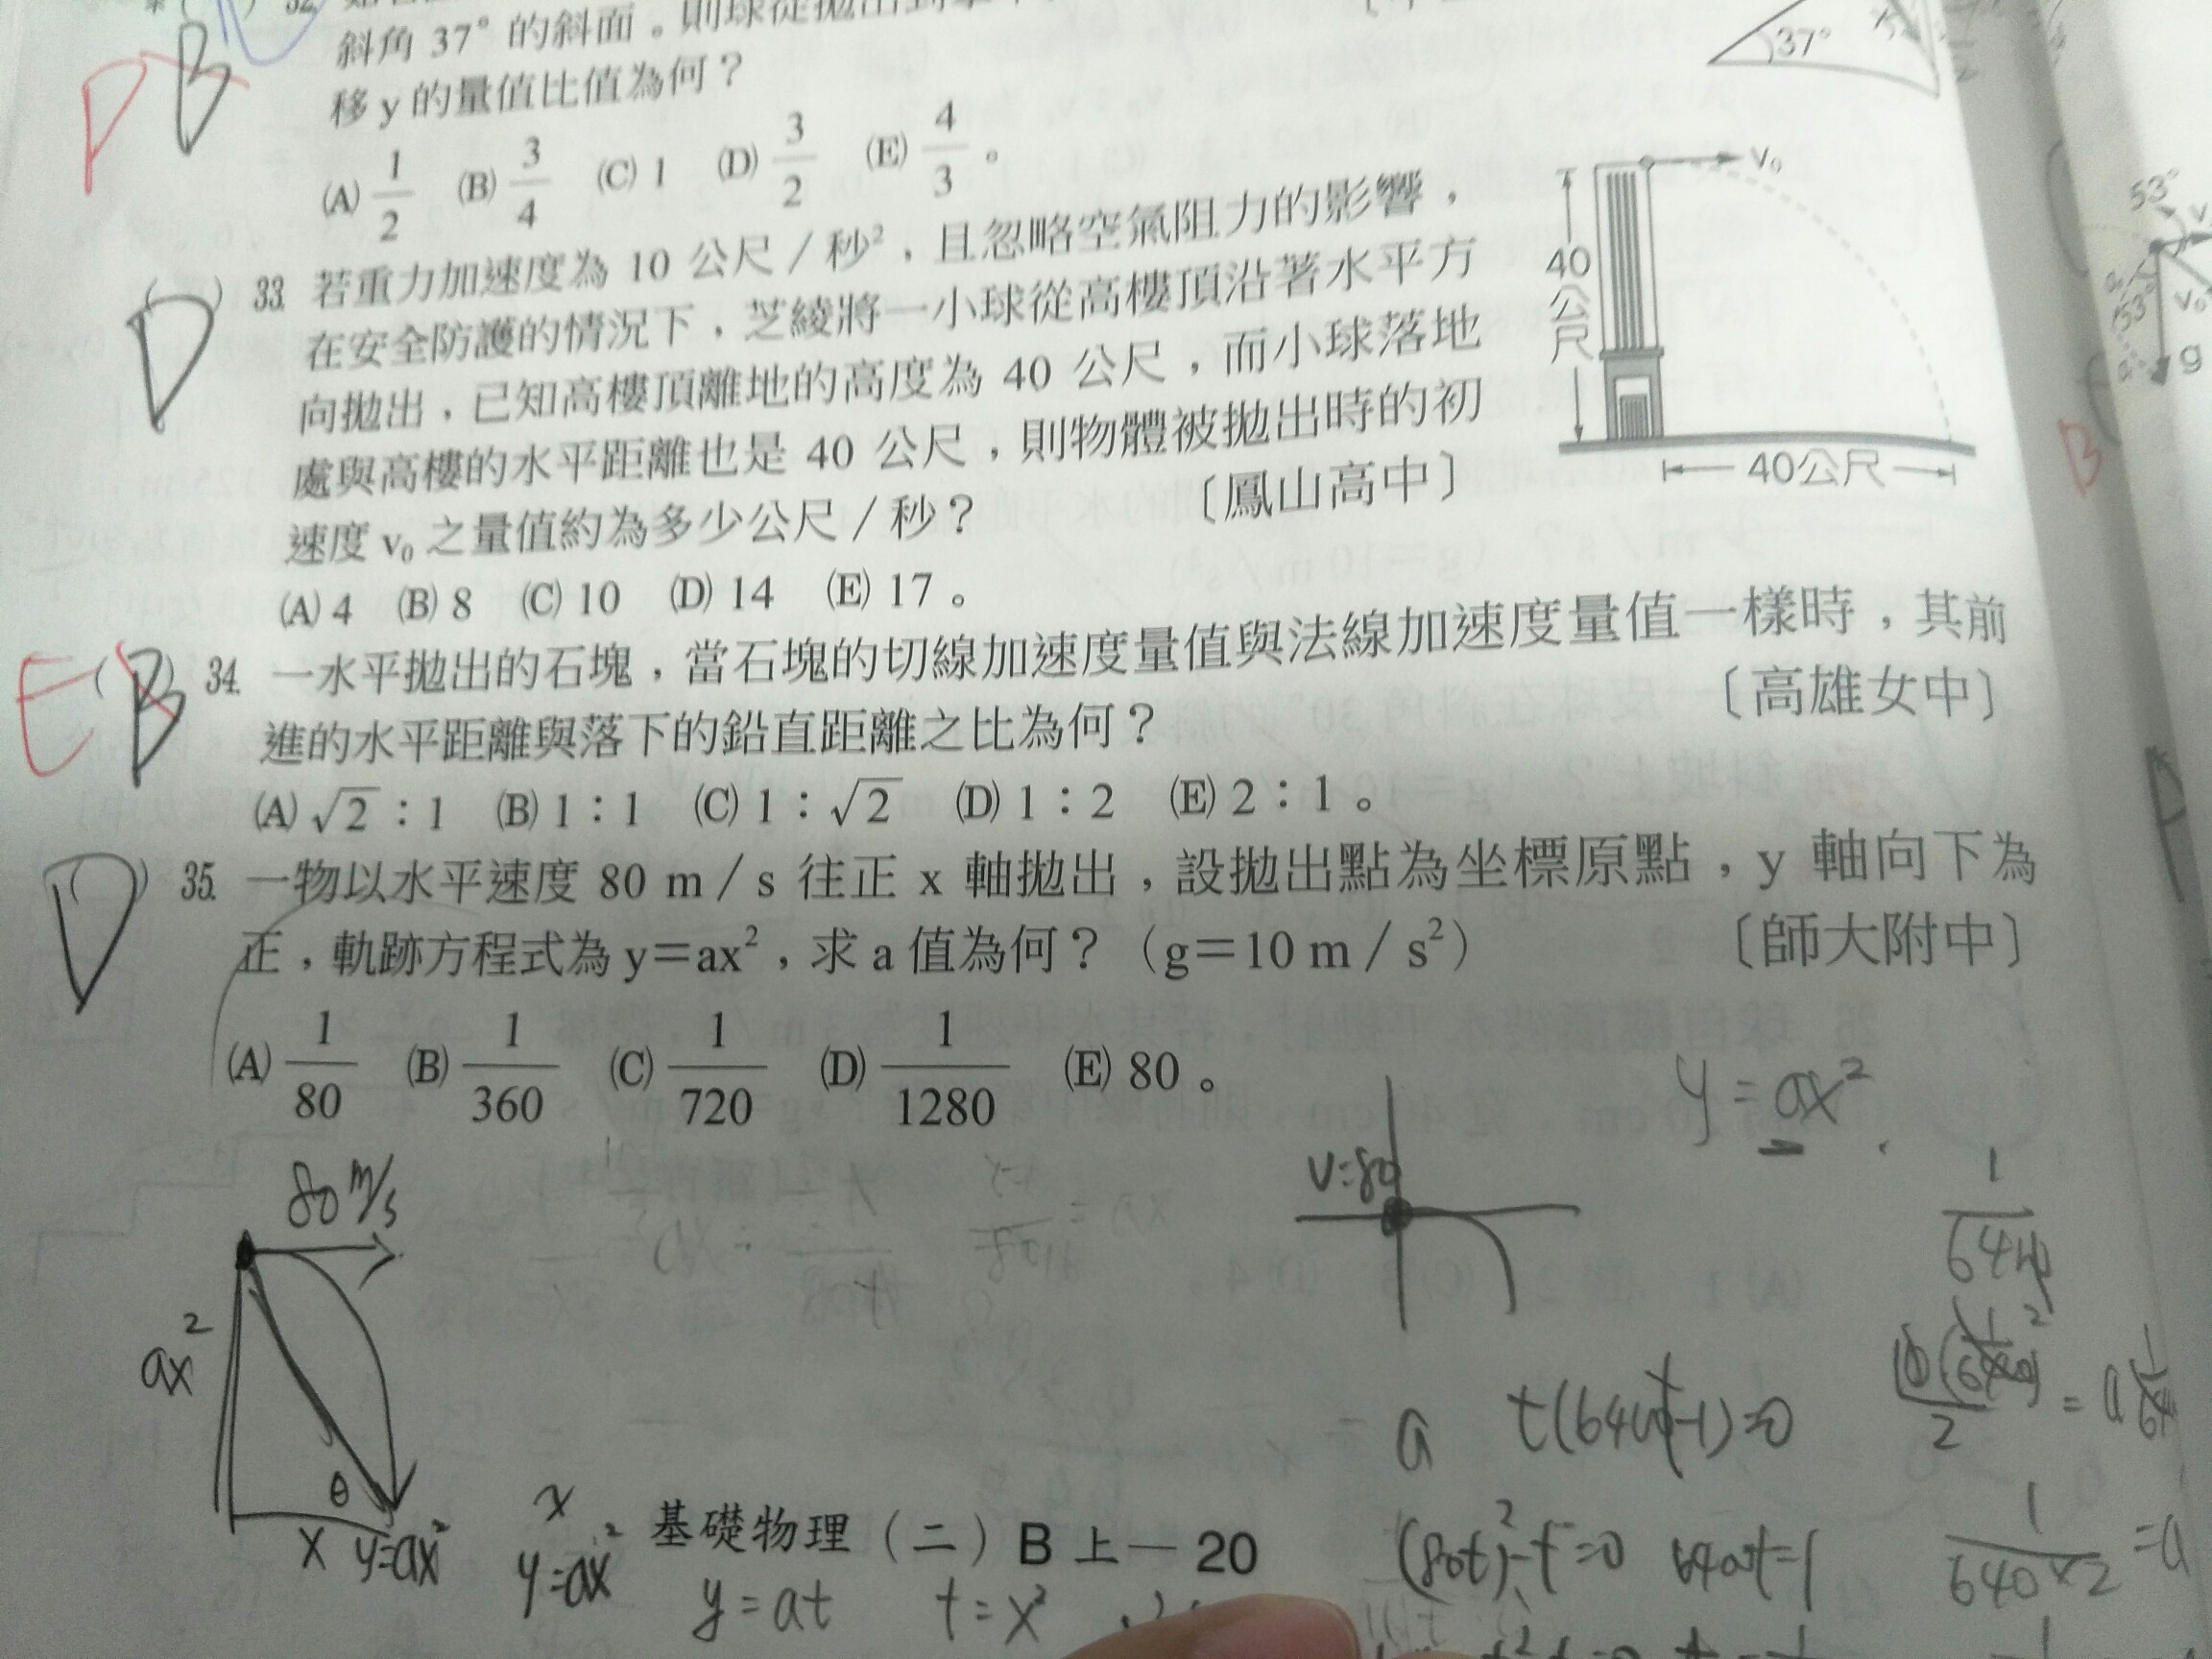 斜角 37° 的斜面。則球從拋出到
移 y 的量值比值為何？
(A) 1/2 (B) 3/4 (C) 1 (D) 3/2 (E) 4/3 。
37°
P B
D ( ) 33. 若重力加速度為 10 公尺／秒²，且忽略空氣阻力的影響，
在安全防護的情況下，芝綾將一小球從高樓頂沿著水平方
向拋出，已知高樓頂離地的高度為 40 公尺，而小球落地
處與高樓的水平距離也是 40 公尺，則物體被拋出時的初
速度 v₀ 之量值約為多少公尺／秒？ 〔鳳山高中〕
(A) 4 (B) 8 (C) 10 (D) 14 (E) 17 。
v₀
40公尺
40公尺
E ( B ) 34. 一水平拋出的石塊，當石塊的切線加速度量值與法線加速度量值一樣時，其前
進的水平距離與落下的鉛直距離之比為何？ 〔高雄女中〕
(A) √2：1 (B) 1：1 (C) 1：√2 (D) 1：2 (E) 2：1 。
D ( ) 35. 一物以水平速度 80 m／s 往正 x 軸拋出，設拋出點為坐標原點，y 軸向下為
正，軌跡方程式為 y=ax²，求 a 值為何？（g=10 m／s²） 〔師大附中〕
(A) 1/80 (B) 1/360 (C) 1/720 (D) 1/1280 (E) 80 。
y = ax²
80 m/s
V=80
ax²
θ
x y=ax²
x
y=ax²
y = at t = x²
a
(80t)²-t=0
1/(640×2) = a
基礎物理（二）B 上— 20
53°
53°
v₀
g
B